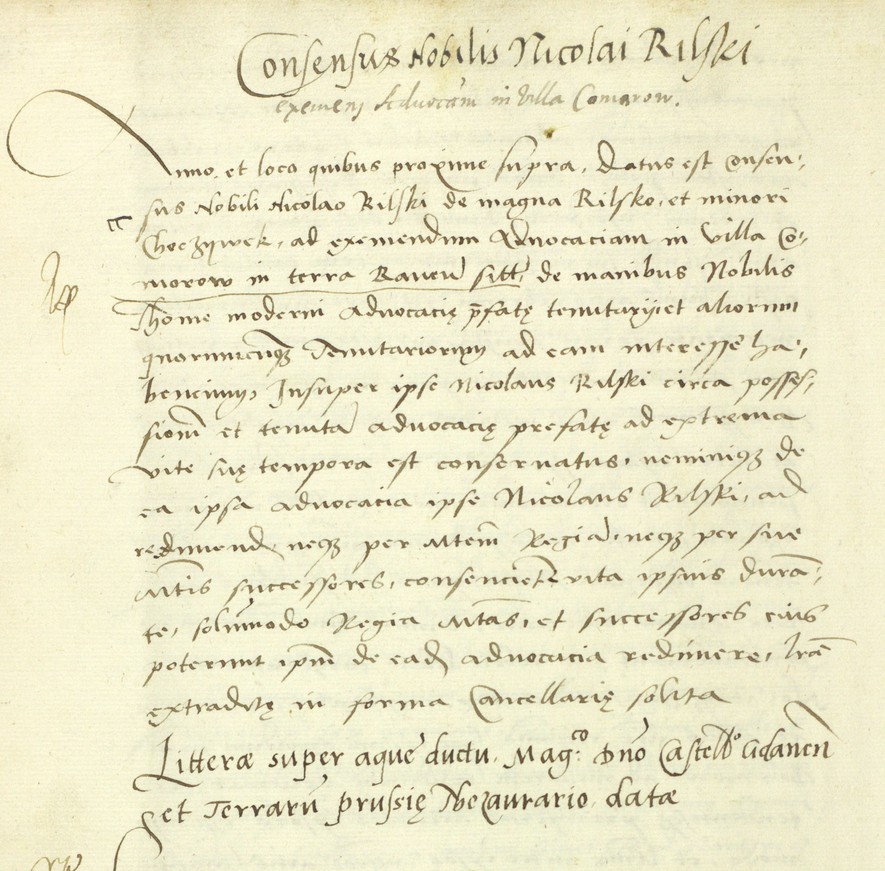 Consensus Nobilis Nicolai Rilski
eximenj Advocatiam in villa Comorow.
Anno et loco quibus proxime supra, Datus est Consen-
sus Nobili Nicolao Rilski de magna Rilsko, et minori
ad eximendum Advocaciam in Villa Co-
morow in terra Raven sitt, de manibus Nobilis
Thome moderni Advocacię pfatę tenutarij et aliorum
quorumcunqz Tenutariorum ad eam interesse ha-
bencium, Insuper ipse Nicolaus Rilski circa posses-
sionem et tenutam advocacię prefatę ad extrema
vite suę tempora est conservatus, neminiqz de
ea ipsa advocacia ipse Nicolaus Rilski, ad
redimend neqz per Mtem Regia, neqz per sue
Mtis successores, consenciet vita ipsius duran-
te, solummodo Regia Mtas, et successores eius
poterunt ipm de ead advocacia redimere, lrae
extraditę in forma Cancellarię solita
Litteræ super aque ductu Magco Dno Castello Gdanen
et Terraru prussię Thezaurario datæ